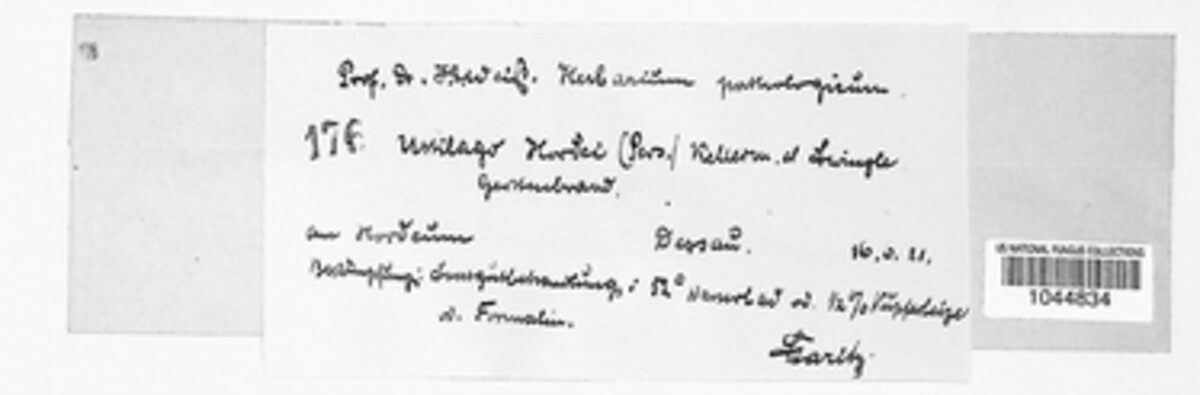 Prof. Dr. Herbarium pathologicum.
176. Ustilago Hordei (Pers.) Kellerm. et Swingle
Gerstenbrand.
an Hordeum Dessau. 21.
Bekämpfung: Saatgutbehandlung i 52° Wasserbad od. 1/2 % Kupferbeize
o. Formalin.
Staritz.
US NATIONAL FUNGUS COLLECTIONS
1044834